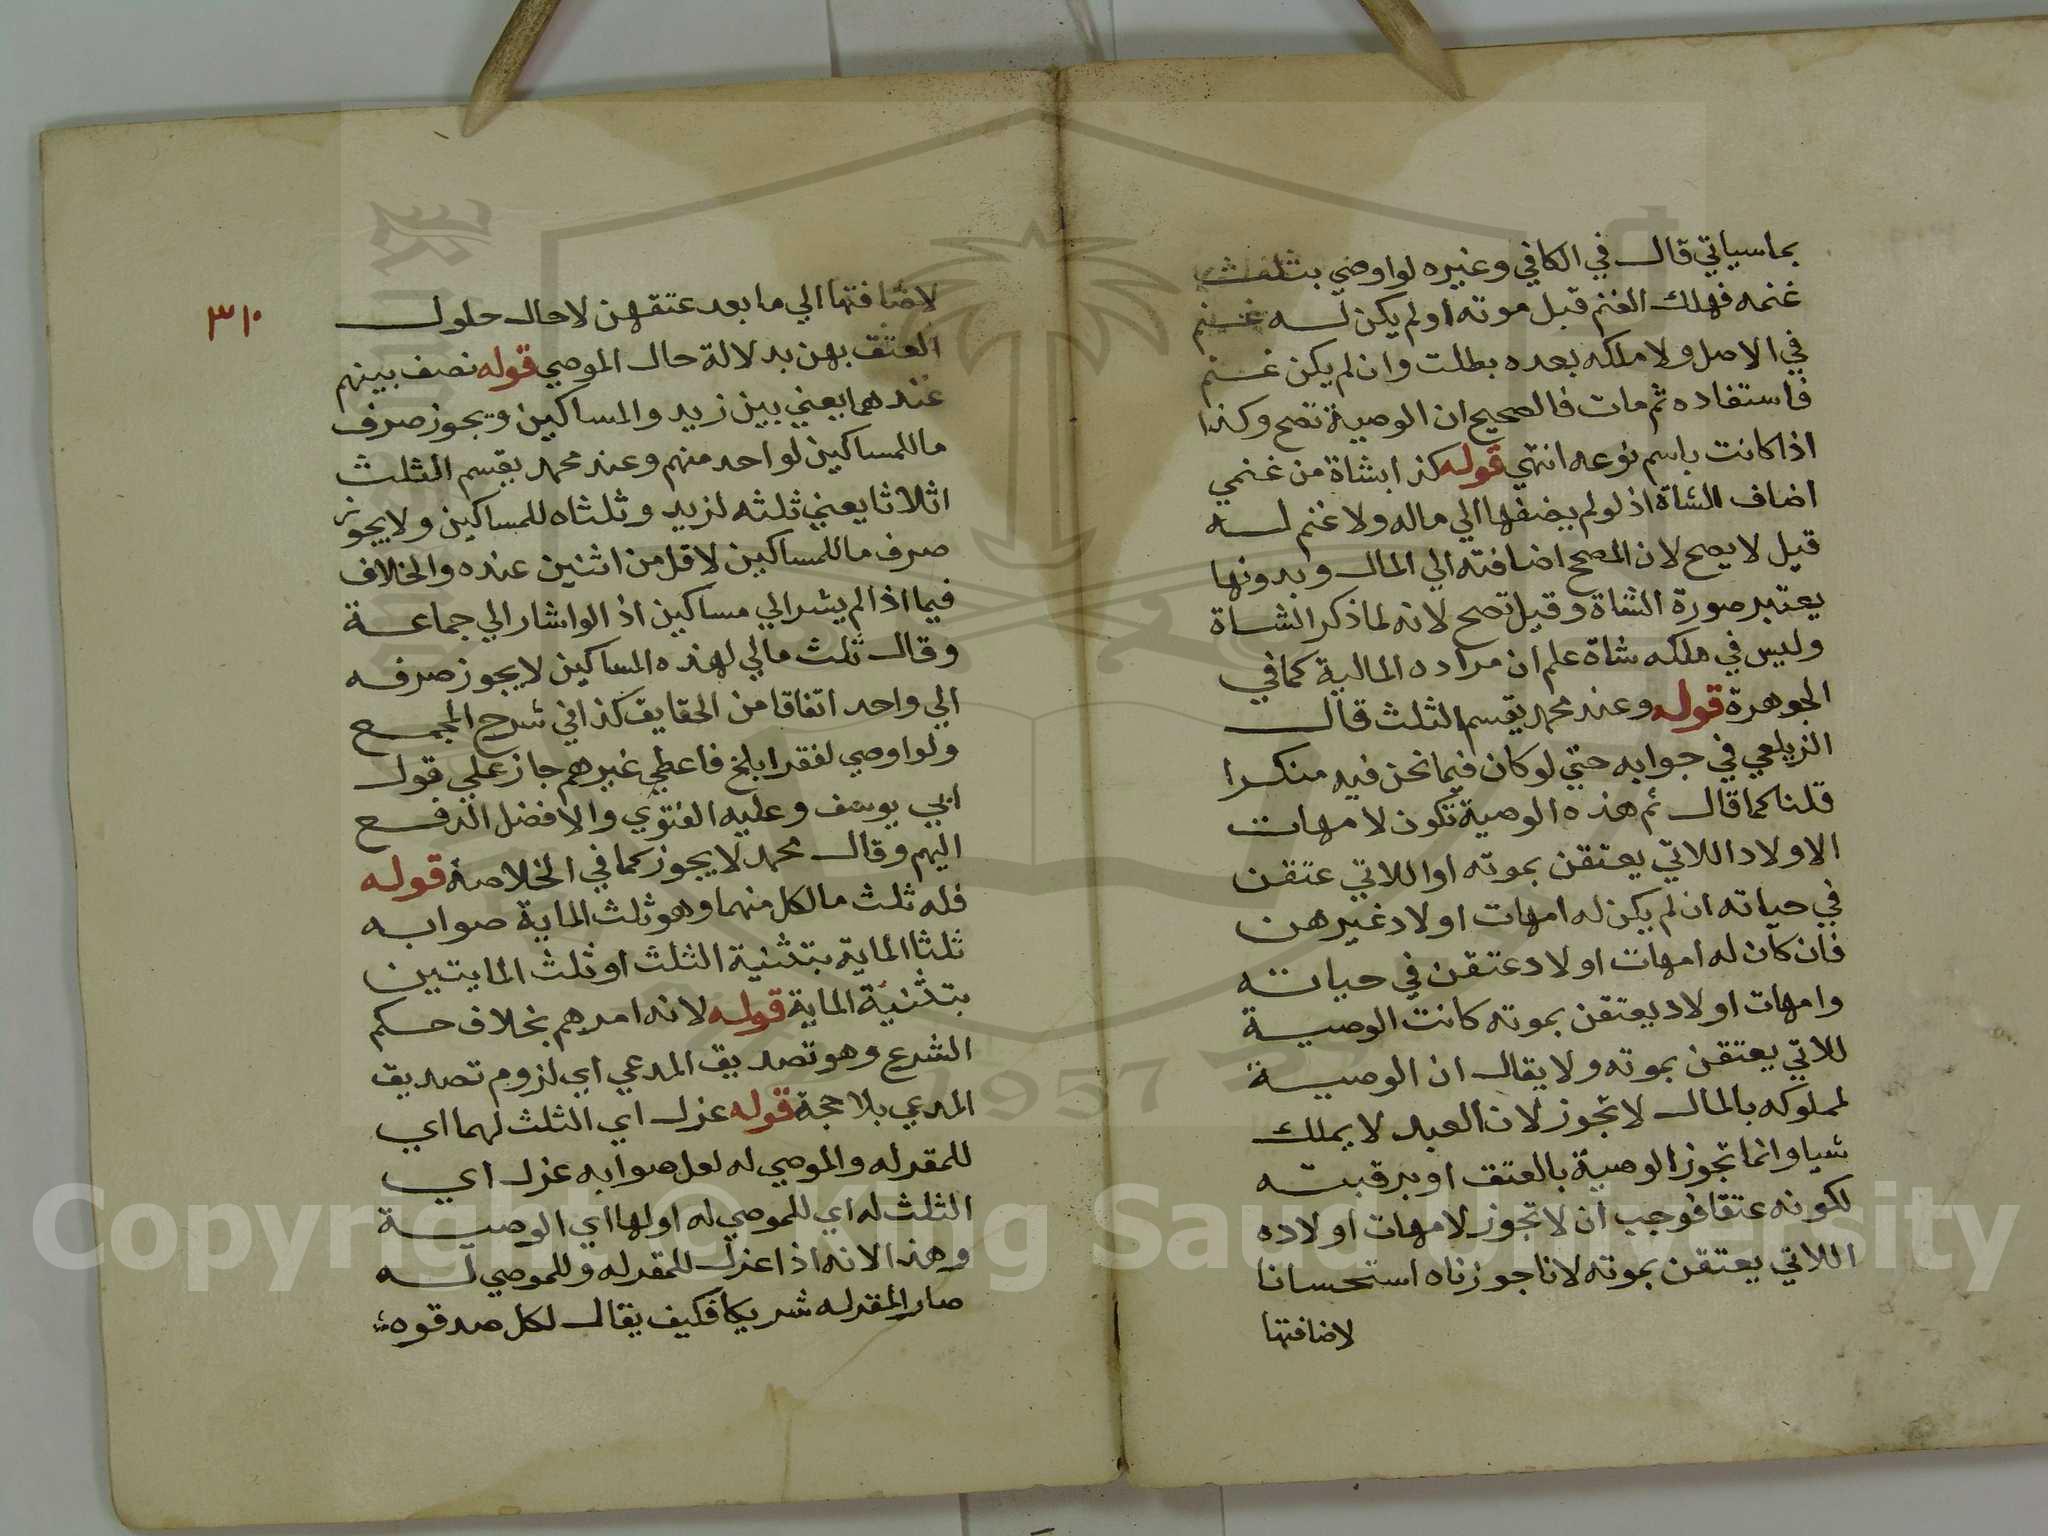 بماسياتي قال في الكافي وغيره لواوصي بثلث
غنمه فهلك الغنم قبل موته اولم يكن له غنم
في الاصل ولاملكه بعده بطلت وان لم يكن غنم
فاستفاده ثم مات فالصحيح ان الوصية تصح وكذا
اذا كانت باسم نوعه انتهي قوله كذا بشاة من غنمي
اضاف الشاة اذ لولم يضفها الي ماله ولاغنم له
قيل لايصح لان المصحح اضافته الي المال وبدونها
يعتبر صورة الشاة وقيل تصح لانه لماذكر الشاة
وليس في ملكه شاة علم ان مراده المالية كمافي
الجوهرة قوله وعند محمد يقسم الثلث قال
الزيلعي في جوابه حتي لوكان فيمانحن فيه منكرا
قلنا كماقال ثم هذه الوصية تكون لامهات
الاولاد اللاتي يعتقن بموته اواللاتي عتقن
في حياته ان لم يكن له امهات اولاد غيرهن
فان كان له امهات اولاد عتقن في حياته
وامهات اولاد يعتقن بموته كانت الوصية
للاتي يعتقن بموته ولايقال ان الوصية
لمملوكه بالمال لاتجوز لان العبد لايملك
شيا وانما تجوز الوصية بالعتق اوبرقبته
لكونه عتقا فوجب ان لاتجوز لامهات اولاده
اللاتي يعتقن بموته لاناجوزناه استحسانا
لاضافتها
٣١٠
لاضافتها الي مابعد عتقهن لاحال حلول
العتق بهن بدلالة حال الموصي قوله نصف بينهم
عندهما يعني بين زيد والمساكين ويجوز صرف
ماللمساكين لواحد منهم وعند محمد يقسم الثلث
اثلاثا يعني ثلثه لزيد وثلثاه للمساكين ولايجوز
صرف ماللمساكين لاقل من اثنين عنده والخلاف
فيما اذالم يشر الي مساكين اذ الواشار الي جماعة
وقال ثلث مالي لهذه المساكين لايجوز صرفه
الي واحد اتفاقا من الحقايق كذافي شرح المجمع
ولواوصي لفقرا بلخ فاعطي غيرهم جاز علي قول
ابي يوسف وعليه الفتوي والافضل الدفع
اليهم وقال محمد لايجوز كمافي الخلاصة قوله
فله ثلث مالكل منهما وهوثلث الماية صوابه
ثلثا الماية بتثنية الثلث اوثلث المايتين
بتثنية الماية قوله لانه امرهم بخلاف حكم
الشرع وهو تصديق المدعي اي لزوم تصديق
المدعي بلاحجة قوله عزل اي الثلث لهما اي
للمقرله والموصي له لعل صوابه عزل اي
الثلث له اي للموصي له اولها اي الوصية
وهذا لانه اذا عزل للمقرله وللموصي له
صار المقرله شريكا فكيف يقال لكل صدقوه
1957
Copyright © King Saud University